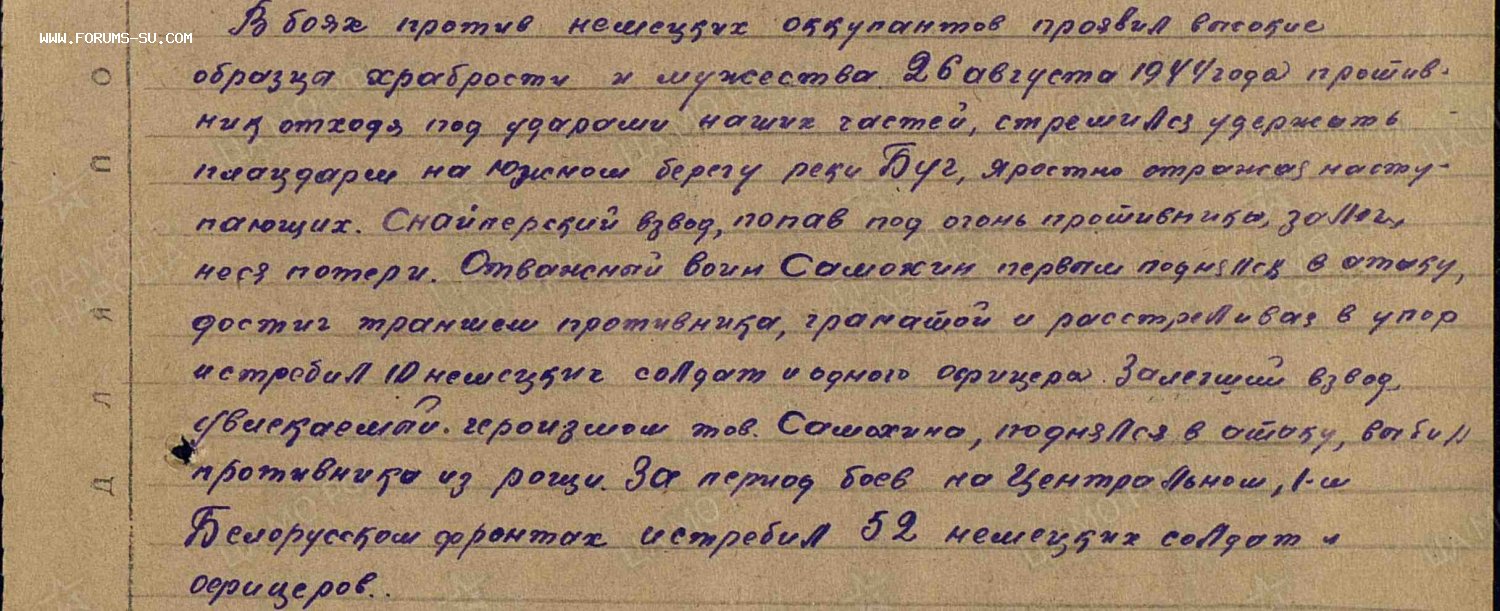 В боях против немецких оккупантов проявил высокие
WWW.FORUMS-SU.COM
образца храбрости и мужества 26 августа 1944 года против-
ник отходя под ударами наших частей, стремился удержать
плацдарм на южном берегу реки Буг, яростно отражая насту-
пающих. Снайперский взвод, попав под огонь противника, залег,
неся потери. Отважный воин Самохин первым поднялся в атаку,
достиг траншеи противника, гранатой и расстреливая в упор
истребил 10 немецких солдат и одного офицера. Залегший взвод,
увлекаемый героизмом тов. Самохина, поднялся в атаку, выбил
противника из рощи. За период боев на Центральном, 1-м
Белорусском фронтах истребил 52 немецких солдат и
офицеров.
ДЛЯ ПО